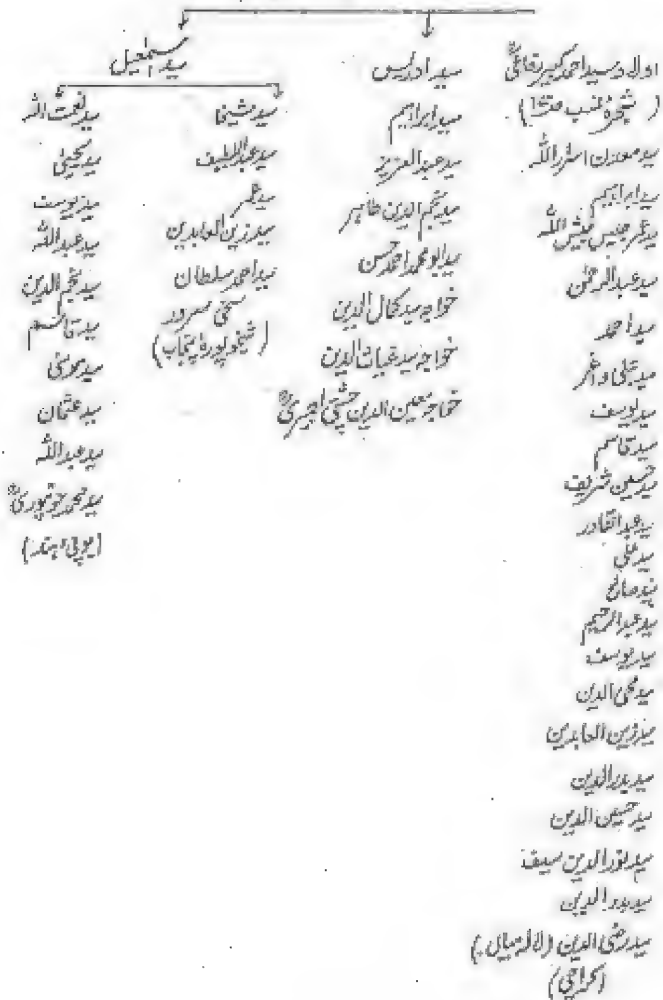 اولاد سید احمد کبیر رفاعیؒ
(شجرۂ نسب)
سید معدن اسرار اللہ
سید ابراہیم
سید عبدالرحمٰن
سید احمد
سید علی
سید یوسف
سید قاسم
سید حسین شریف
سید عبدالقادر
سید علی
سید صالح
سید عبدالرحیم
سید یوسف
سید محی الدین
سید زین العابدین
سید بدرالدین
سید حسین الدین
سید نورالدین سیف
سید بدرالدین
سید رضی الدین (لالہ میاں)
(کراچی)
سید ادریس
سید ابراہیم
سید عبدالعزیز
سید نجم الدین طاہر
سید ابو محمد احمد حسن
خواجہ سید کمال الدین
خواجہ سید غیاث الدین
خواجہ معین الدین چشتی اجمیریؒ
سید اسمٰعیل
سید عبداللطیف
سید عمر
سید زین العابدین
سید احمد سلطان
سخی سرور
(شیخوپورہ پنجاب)
سید نعمت اللہ
سید یحییٰ
سید یوسف
سید عبداللہ
سید نجم الدین
سید قاسم
سید موسیٰ
سید عثمان
سید عبداللہ
سید محمد جونپوریؒ
(یوپی، ہند)